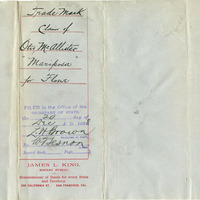 Trade Mark
Claim of
Otis McAllister
"Mariposa"
for Flour
FILED in the Office of the
SECRETARY OF STATE
the 20 day of
Dec A.D. 18
L H Brown
By
Record Book Page
JAMES L. KING,
NOTARY PUBLIC
Commissioner of Deeds for every State
and Territory,
CALIFORNIA ST. SAN FRANCISCO, CAL.